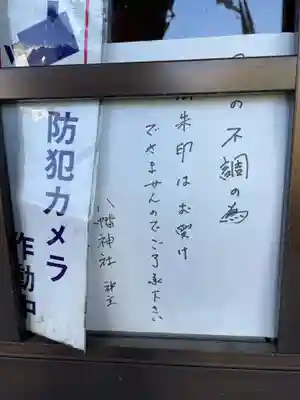 の不調の為
朱印はお受け
できませんのでご了承下さい
八幡神社
防犯カメラ
作動中